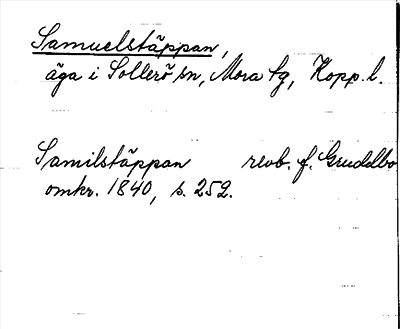 Samuelstäppan,
äga i Sollerö sn, Mora tg, Kopp. l.
Samilstäppan revb. f. Gruddbo
omkr. 1840, s. 252.